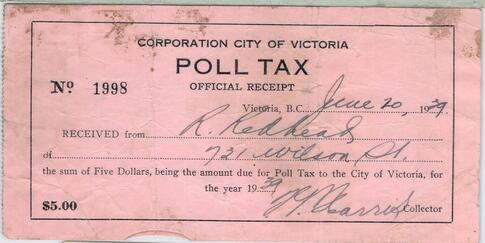 CORPORATION CITY OF VICTORIA
POLL TAX
OFFICIAL RECEIPT
No 1998
Victoria, B.C. June 20, 1939
RECEIVED from R. Redhead
of 731 Wilson St.
the sum of Five Dollars, being the amount due for Poll Tax to the City of Victoria, for
the year 1939
$5.00 Collector